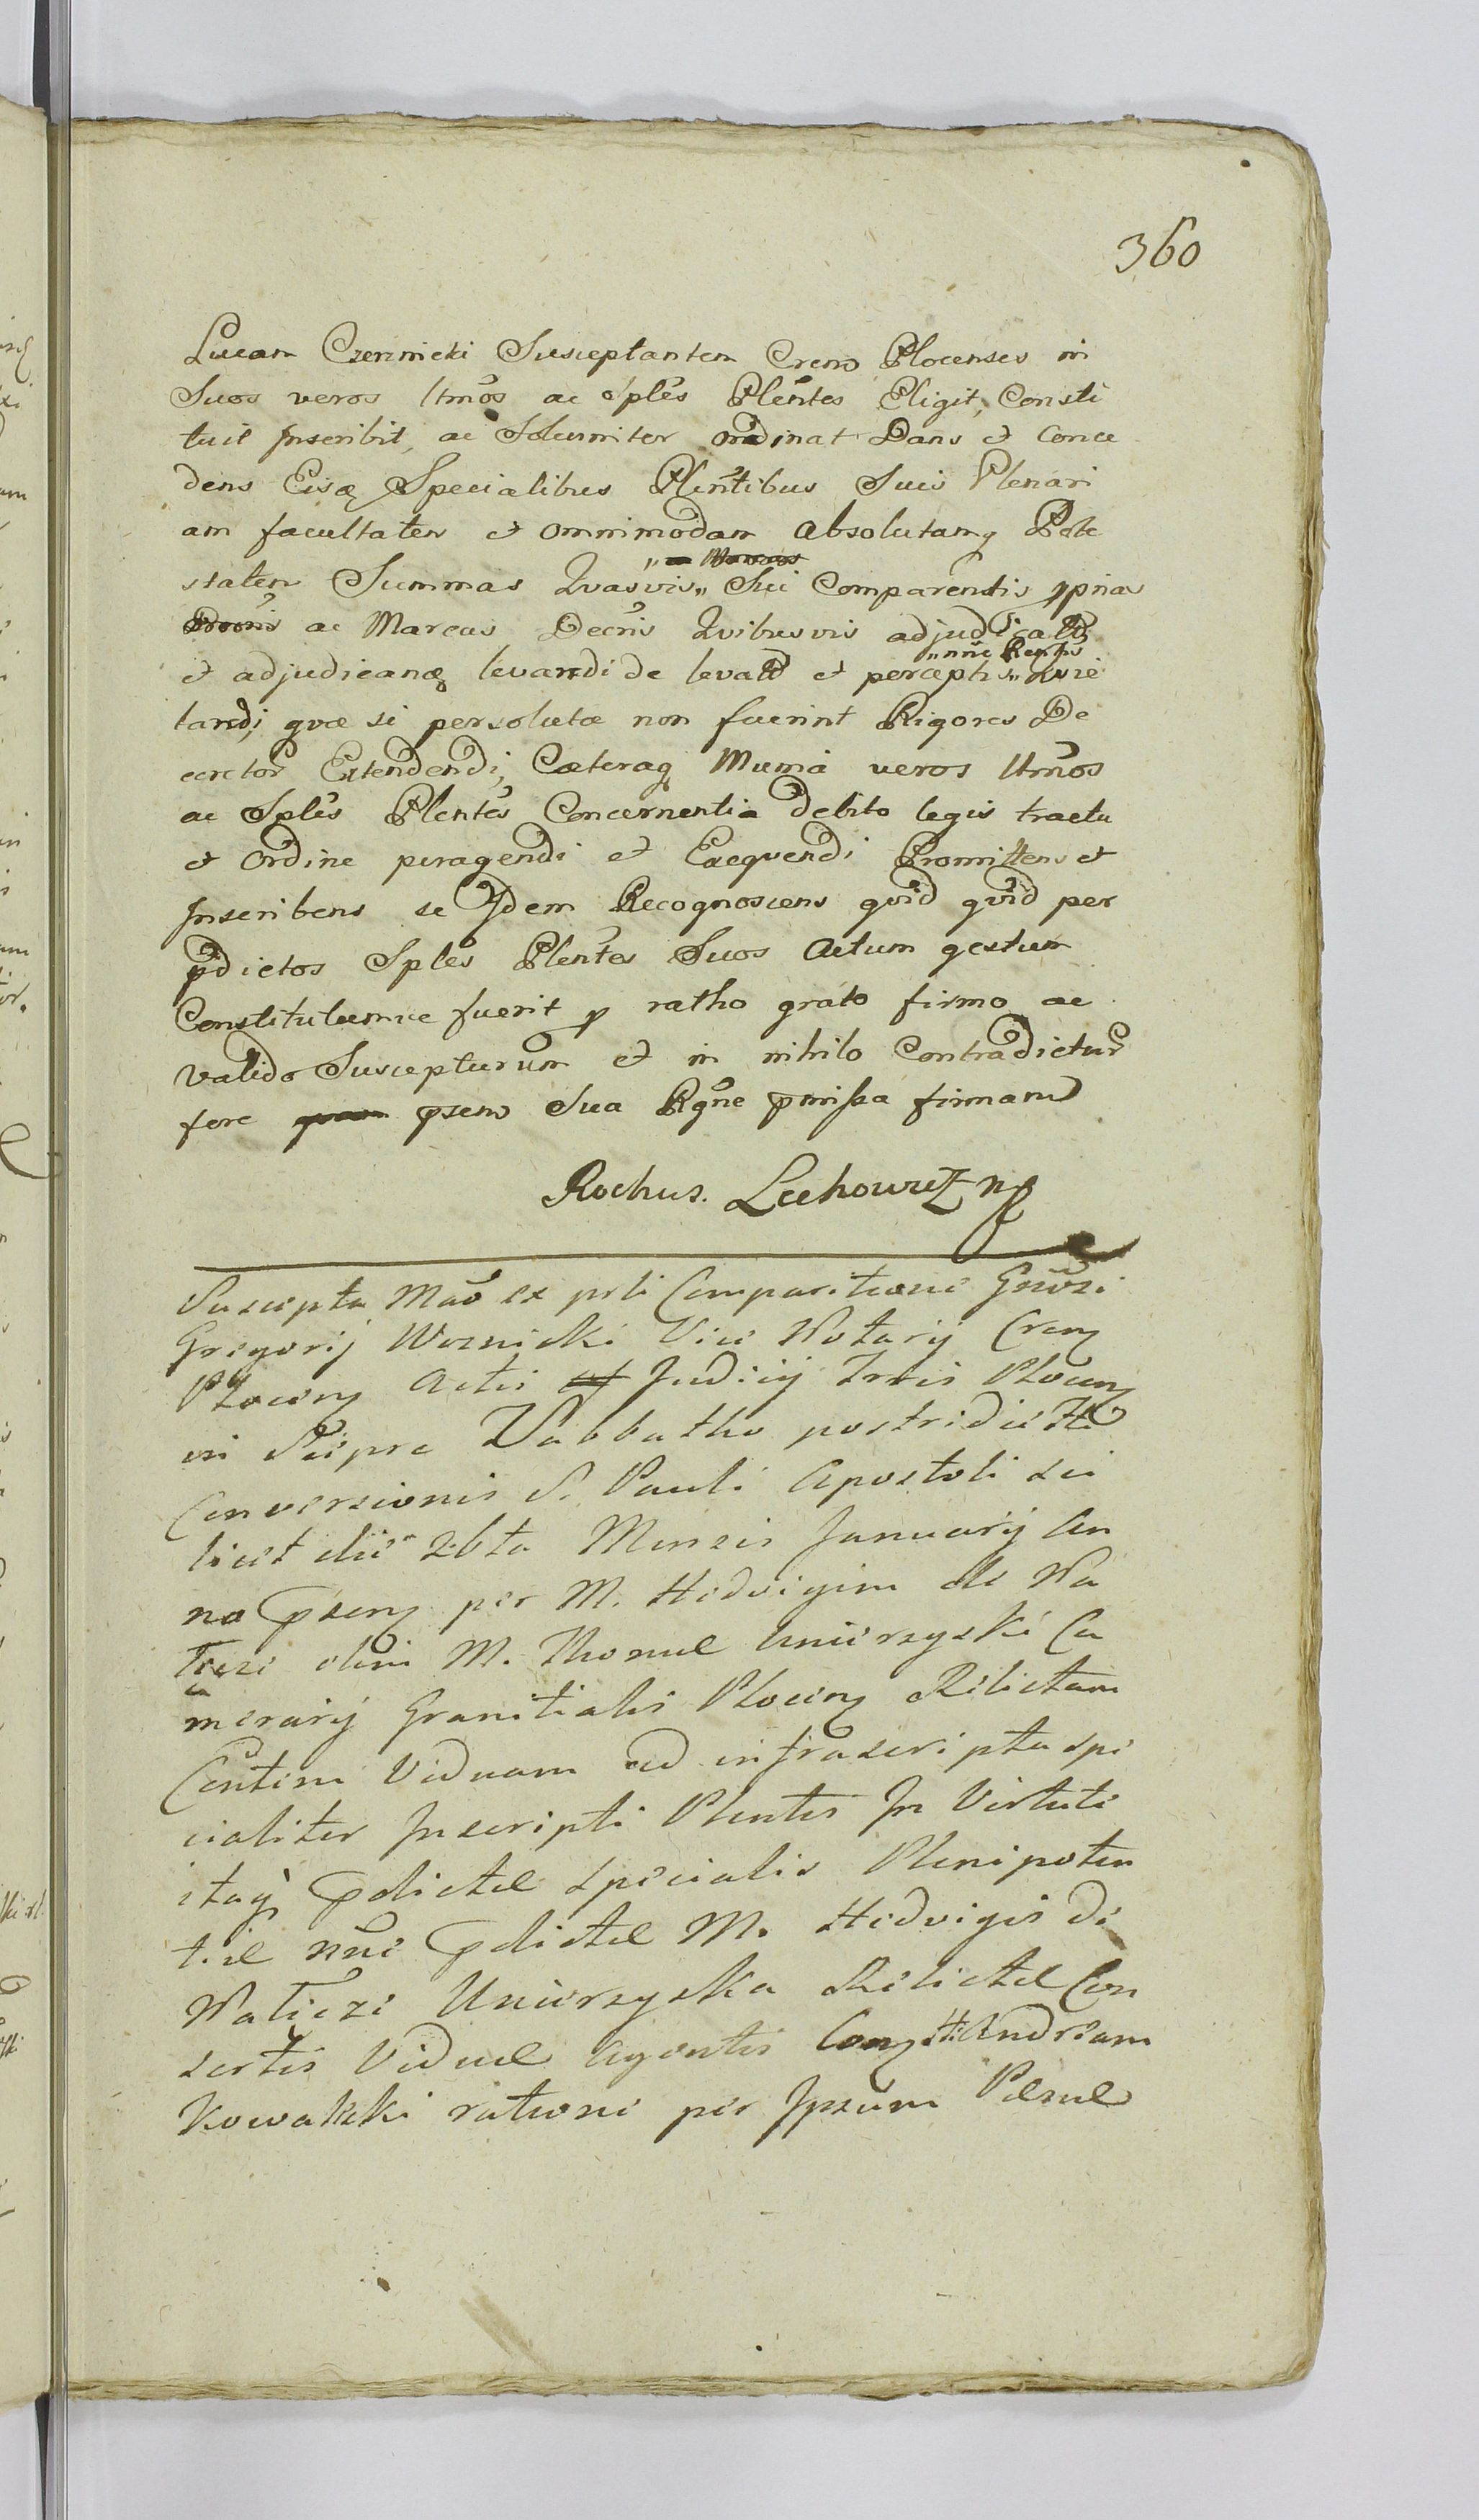 360
Lucam Czermicki Susceptantem Crem Plocenses in
Suos veros Itmos ac sples Plentes Eligit, Consti
tuit Inscribit, ac Solemniter ordinat Dans et Conce
dens Eisq Specialibus Plentibus Suis Plenari
am facultatem et omnimodam absolutamq Pote
statem Summas Quasvis „ Sui Comparentis
ac Marcas Decris Quibusvis adjudicatas
„ nnie
et adjudicandas levandi de levatis et perceptis „ Quie
tandi, quæ si persolutæ non fuerint Rigores De
cretor Extendendi, Cæteraq Munia veros Itmos
ac Sples Plentes Concernentia debito legis tractu
et Ordine peragendi et Exequendi Promittens et
Inscribens se Idem Recognoscens quid quid per
pdictos Sples Plentes Suos Actum gestum
Constitutumve fuerit p ratho grato firmo ac
valido Suscepturum et in nihilo Contradictur
fore psens Sua Rgne pmissa firmans
Rochus. Lechowicz mp
Suscepta Mao ex psli Comparitione Gnosi
Gregorij Woznicki Vice Notarij Crem
Plocen Actis Judicij Trris Plocen
in Sierpc Sabbatho postridie
Conversionis S. Pauli Apostoli sci
licet die 26ta Mensis Januarij An
no psenq per M. Hedvigim de Na
Triezi olim M. Thomæ Unierzyski Ca
merarij Granitialis Plocen Relictam
Csrtem Viduam ad infrascripta spe
cialiter Inscripti Plentis In Virtute
itaq pdictæ specialis Plenipoten
tiæ nne pdictæ M. Hedvigis de
Natiezi Unierzyska Relictæ Con
sortis Viduæ Agentis Conq Andream
Kowalski ratione per Ipsum